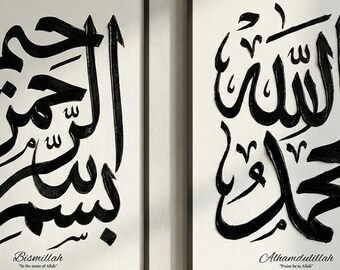 بسم الله الرحمن الرحيم
Bismillah
"In the name of Allah"
الله
Alhamdulillah
"Praise be to Allah"